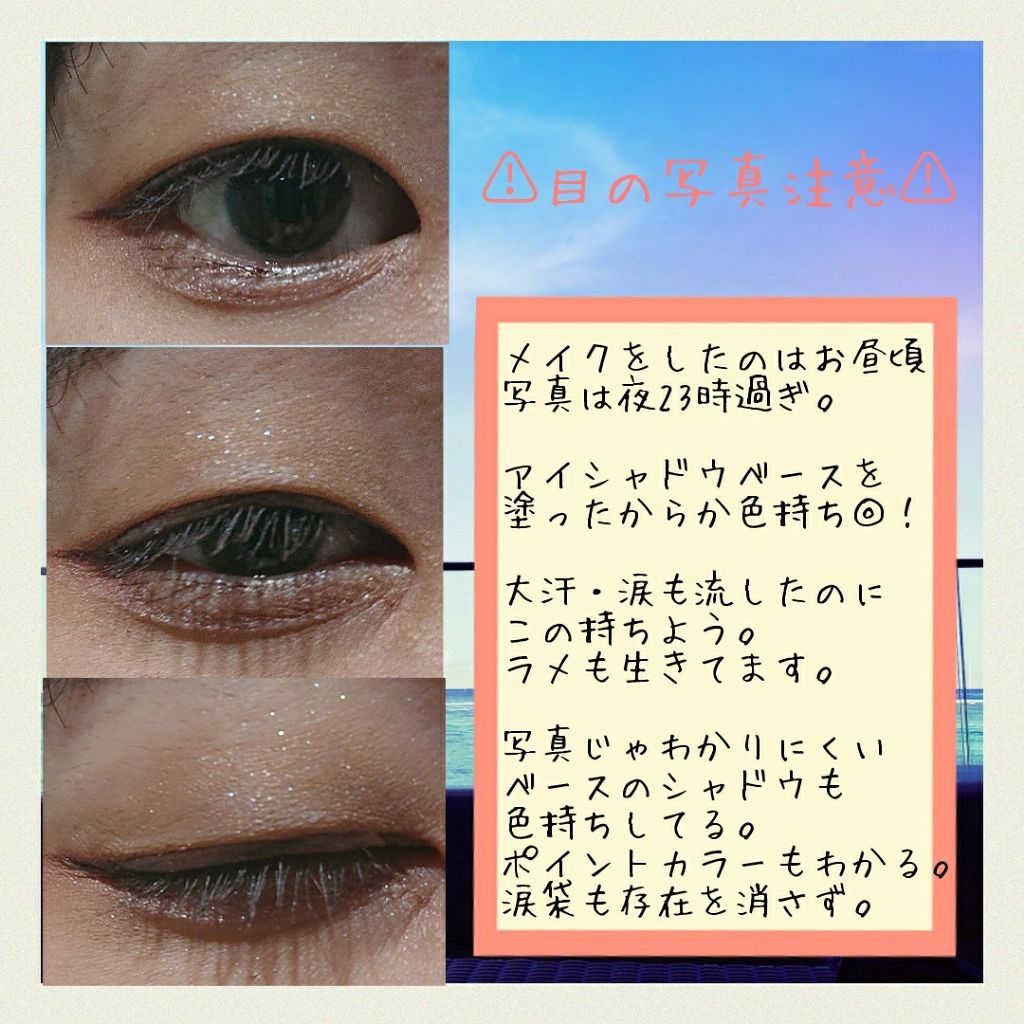 ⚠目の写真注意⚠
メイクをしたのはお昼頃
写真は夜23時過ぎ。
アイシャドウベースを
塗ったからか色持ち◎!
大汗・涙も流したのに
この持ちよう。
ラメも生きてます。
写真じゃわかりにくい
ベースのシャドウも
色持ちしてる。
ポイントカラーもわかる。
涙袋も存在を消さず。